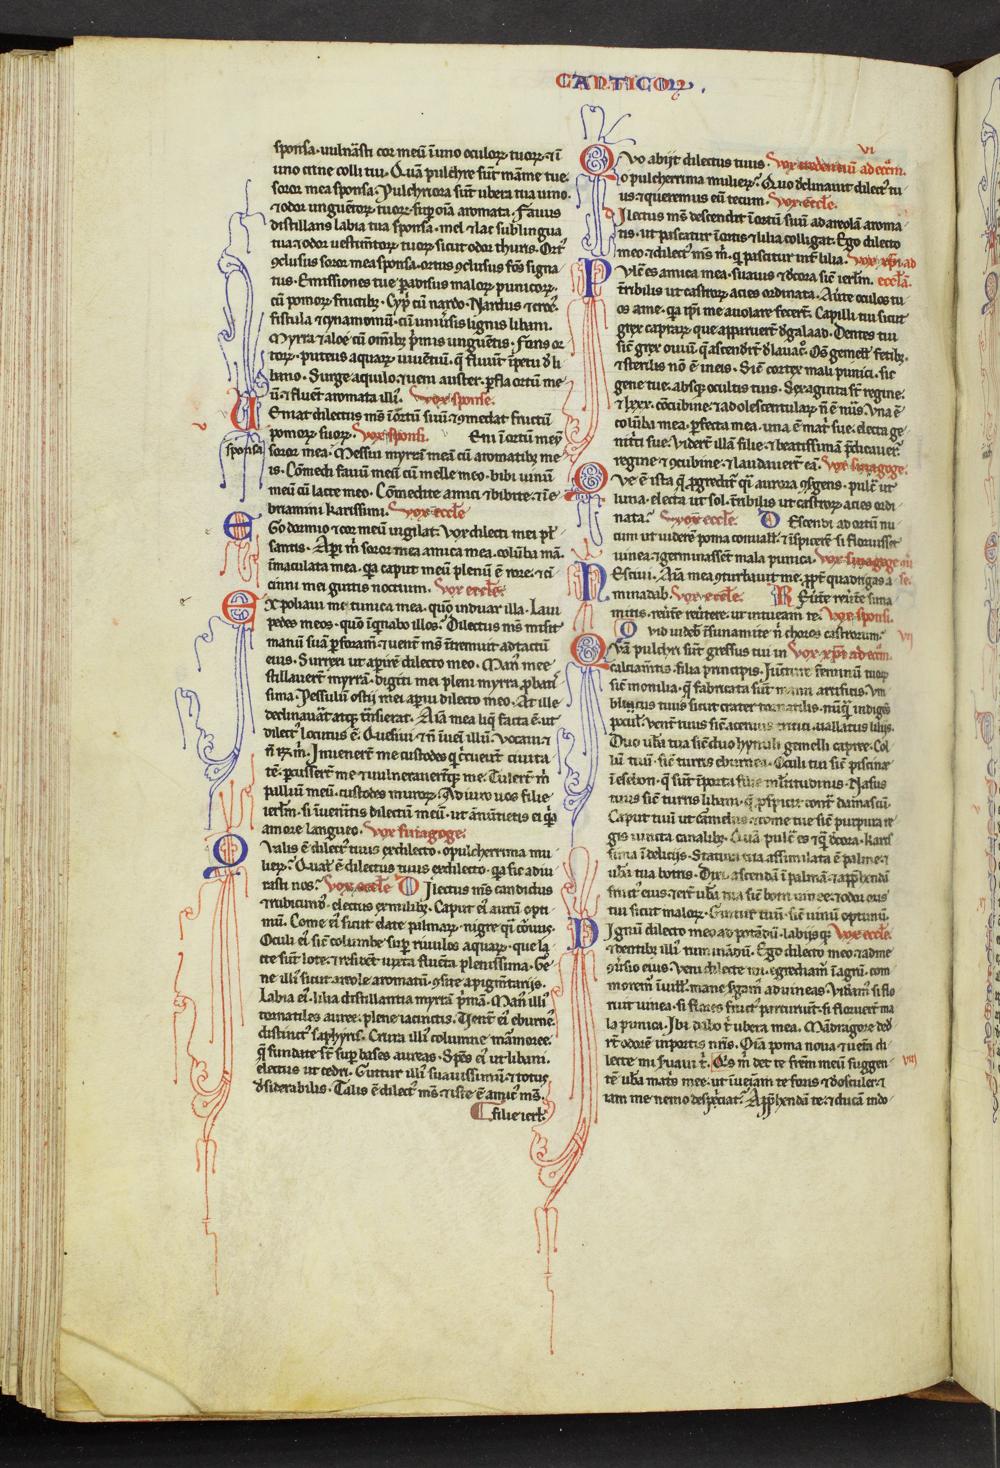 CANTICOꝜ.
sponsa. uulnasti cor meū ī uno oculoꝝ tuoꝝ. ⁊ ī
uno crine colli tui. Quā pulchre sūt māme tue
soror mea sponsa. Pulchriora sūt ubera tua uino.
⁊ odor unguētoꝝ tuoꝝ suꝑ oīa aromata. Fauus
distillans labia tua sponsa. mel ⁊ lac sub lingua
tua ⁊ odor uestimtoꝝ tuoꝝ sicut odor thuris. Ort᷒
ꝯclusus soror mea sponsa. ortus ꝯclusus fōs signa
tus. Emissiones tue ꝑadisus maloꝝ punicoꝝ.
cū pomoꝝ fructibꝫ. Cypͥ cū nardo. Nardus ⁊ croc᷒.
fistula ⁊ cynamomū. cū uniūsis lignis libani.
Myrra ⁊ aloe cū omībꝫ pͥmis unguētis. Fons or
toꝝ. puteus aquaꝝ uiuētiū. q̄ fluūt īpetu d̄ li
bano. Surge aquilo. ⁊ ueni auster. ꝑfla ortū me
ū. ⁊ fluēt aromata illi᷒. vox sponse.
UEniat dilectus ms̄ ī ortū suū. ⁊ ꝯmedat fructū
pomoꝝ suoꝝ. Vox sponsi. Eni ī ortū meū
sponsa soror mea. Messui myrrā meā cū aromatibꝫ me
is. Cōmedi fauū meū cū melle meo. bibi uinū
meū cū lacte meo. Cōmedite amici ⁊ bibite. ⁊ īe
briamini karissimi. vox eccl̄e
EGo dormio ⁊ cor meū uigilat. Vox dilecti mei pl᷒
santis. Aꝑi m̄ soror mea amica mea. colūba mā.
īmaculata mea. qͣ caput meū plenū ē rore. ⁊ cī
cinni mei guttis noctium. Vox eccl̄e.
EXpoliaui me tunica mea. quō induar illa. Laui
pedes meos. quō īqnabo illos. Dilectus ms̄ misit
manū suā ꝑ foramē. ⁊ uent᷒ ms̄ ītremuit ad tactū
eius. Surrexi ut aꝑirē dilecto meo. Man᷒ mee
stillauert᷒ myrrā. digiti mei pleni myrra ꝓbatis
sima. Pessulū ostii mei aꝑui dilecto meo. At ille
declinauāt atqꝫ trāsierat. Aīa mea liq̄facta ē. ut
dilect᷒ locutus ē. Quesiui ⁊ n̄ īuei illū. Vocaui ⁊
n̄ r̄ m̄. Inuenert᷒ me custodes q̇ circueūt ciuita
tē. ꝑcussert᷒ me ⁊ uulnerauertqꝫ me. Tulert᷒ m̄
palliū meū. custodes muroꝝ. Adiuro uos filie
ierl̄m. si īueneritis dilectū meū. ut ānūtietis ei qͣ
amore langueo. Vox sinagoge.
QUalis ē dilect᷒ tuus ex dilecto. o pulcherrima mu
lieꝝ. Qual᷒ ē dilectus tuus ex dilecto. qͣ sic adiu
rasti nos. Vox eccl̄e DIlectus ms̄ candidus
⁊ rubicūd᷒. electus ex milibꝫ. Caput ei᷒ aurū opti
mū. Come ei᷒ sicut elate palmaꝝ. nigre qͣ coruus.
Oculi ei᷒ sic̄ columbe suꝑ riuulos aquaꝝ. que la
cte sūt lote. ⁊ resident iuxta fluēta plenissima. Ge
ne illi᷒ sicut areole aromatū. ꝯsite a pigmtariis.
Labia ei᷒. lilia distillantia myrrā pͥmā. Man᷒ illi᷒
tornatiles auree. plene iacinctis. Uent᷒ ei᷒ eburne᷒.
distinct᷒ saphyris. Crura illi᷒ columne marmoree.
q̄ fundate st̄ suꝑ bases aureas. Spēs ei᷒ ut libani.
electus ut cedri. Guttur illi᷒ suauissimū. ⁊ totus
d̄siderabilis. Talis ē dilect᷒ ms̄. ⁊ iste ē amic᷒ ms̄.
filie ierl̄.
VI
QVo abiit dilectus tuus. Vox
o pulcherrima mulieꝝ. Quo declinauit dilect᷒ tu
us. ⁊ queremus eū tecum. Vox eccl̄e.
DIlectus ms̄ descendit ī ortū suū ad areolā aroma
tis. ut pascatur ī ortis ⁊ lilia colligat. Ego dilecto
meo. ⁊ dilect᷒ ms̄ m̄. q̇ pascitur int᷒ lilia. Vox xp̄i ad
PVlc̄ es amica mea. suauis ⁊ d̄cora sic̄ ierl̄m. eccl̄ā.
t᷒ribilis ut castroꝝ acies ordinata. Au᷒te oculos tu
os a me. qͣ ip̄i me auolare fecert᷒. Capilli tui sicut
grex capraꝝ que apparuert᷒ d̄ galaad. Dentes tui
sic̄ grex ouiū. q̄ ascendert᷒ d̄ lauac᷒. Oms̄ gemell᷒ fetibꝫ.
⁊ sterilis nō ē ī eis. Sic̄ cortex mali punici. sic
gene tue. absqꝫ ocultis tuis. Sexaginta st̄ regine.
⁊ lxxx. cōcubine. ⁊ adolescentulaꝝ n̄ ē nu͞s. Vna ē
colūba mea. ꝑfecta mea. una ē mat᷒ sue. electa ge
nitͥci sue. Videt᷒ illā filie. ⁊ beatissimā p̄dicauer᷒.
regine ⁊ ꝯcubine. ⁊ laudauert᷒ eā. Vox sinagoge.
QVe ē ista q̄ ꝓgredit᷒ qͣ aurora ꝯsurgens. pulc̄ ut
luna. electa ut sol. t᷒ribilis ut castroꝝ acies ordi
nata. Vox eccl̄e. DEscendi ad ortū nu
cum ut uiderē poma conuall᷒. ⁊ īspicerē si floruisset
uinea. ⁊ germinassēt mala punica. Vox sinagoge
NEsciui. Aīa mea ꝯturbauit me. ꝓpt᷒ quadrigas a
minadab. Vox eccl̄e. REu᷒te reu᷒te suna
mitis. reu᷒te reu᷒tere. ut intueam᷒ te. Vox sponsi.
QVid uideb᷒ ī sunamite n̄ choros castroꝝum. VII
QVā pulchri sūt gressus tui in Vox xp̄i ad eccl̄am.
calciamtis. filia principis. Iūcture feminū tuoꝝ
sic̄ monilia. q̄ fabricata sūt manu artificis. Vm
bilicus tuus sicut crater tornatilis. nūq̄ indigēs
poculis. Vent᷒ tuus sic̄ aceruus tritici. uallatus liliis.
Duo ub᷒a tua sic̄ duo hynuli gemelli capree. Col
lū tuū. sic̄ turris eburnea. Oculi tui sic̄ piscine
ī esebon. q̄ sūt ī porta filie multitudinis. Nasus
tuus sic̄ turris libani. q̄ ꝓspicit cont᷒ damascū.
Caput tuū ut carmelus. ⁊ come tue sic̄ purpura re
gis uincta canalibꝫ. Quā pulc̄ es ⁊ q̄ d̄cora. karis
sima ī deliciis. Statura tua assimilata ē palme. ⁊
ub᷒a tua botris. Dixi ascendā ī palmā. ⁊ app̄hendā
fruct᷒ eius. ⁊ ert᷒ ub᷒a tua sic̄ botri uinee. ⁊ odor oris
tui sicut maloꝝ. Guttur tuū. sic̄ uinū optimū.
DIgnū dilecto meo ad potādū. labiisqꝫ Vox eccl̄e.
⁊ dentibꝫ illi᷒ ruminādū. Ego dilecto meo. ⁊ ad me
ꝯuersio eius. Veni dilecte mi. egrediam᷒ ī agrū. com
morem᷒ ī uill᷒. mane surgam᷒ ad uineas. Videam᷒ si flo
ruit uinea. si flores fruct᷒ parturiūt. si floruert᷒ ma
la punica. Ibi dabo t̄ ubera mea. Mādragore ded᷒
rt᷒ odorē in portis nr̄is. Oīa poma noua ⁊ uetera di
lecte mi suaui t̄. Qis m̄ det te frēm meū suggen VIII
tē ub᷒a mat᷒s mee. ut īueīam te foris ⁊ d̄osculer. ⁊
iam me nemo despiciat. App̄hendā te. ⁊ ducā in do